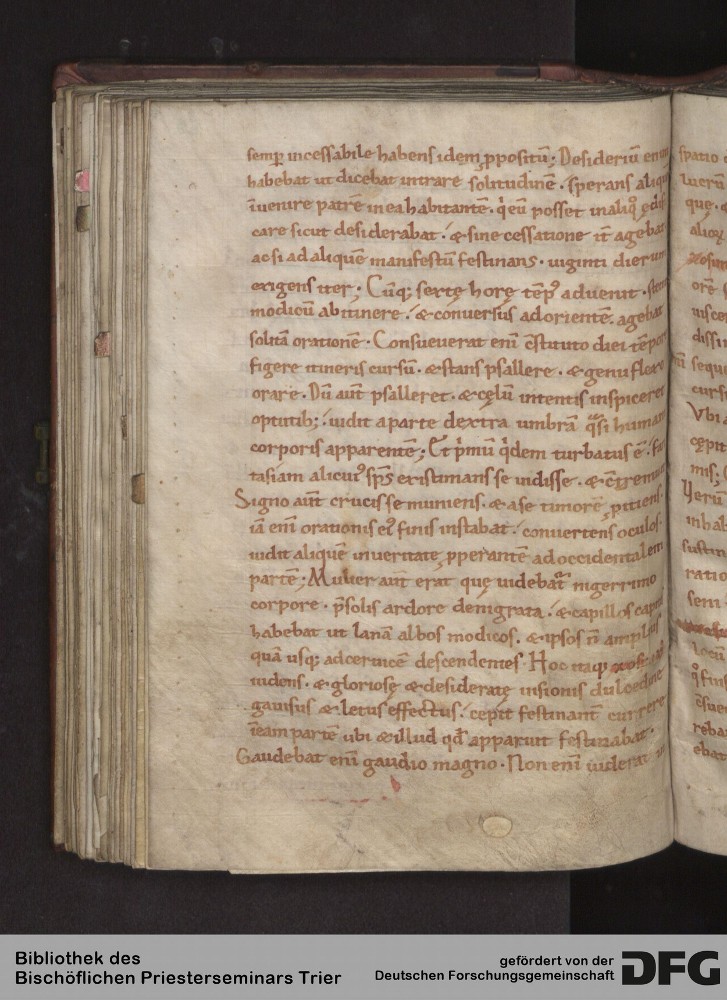 semp incessabile habens idem ꝓpositū; Desideriū enim
habebat ut dicebat intrare solitudinē. sperans aliquē
īuenire patrē in ea habitantē. q̇ eū posset in aliq̊ ędifi
care sicut desiderabat. & sine cessatione it̄ agebat
ac si ad aliquē manifestū festinans. uiginti dierum
exigens iter; Cūq; sextę horę tēpꝰ aduenit.
modicū ab itinere. & conuersus ad orientē. agebat
solitā orationē. Consueuerat enī cstituto diei tēpore
figere itineris cursū. & stans psallere. & genu flexo
orare. Dū aut̄ psalleret. & cęlū intentis inspiceret
optutib;. uidit a parte dextra umbrā qͣsi humani
corporis apparentē; Et p̍mū q̇dem turbatus ē. fan
tasiam alicuiꝰ sp̄s existimans se uidisse. & c̄tremuit
Signo aut̄ crucis se muniens. & a se timorē ꝓitiens.
iā enī orationis eiꝰ finis instabat. conuertens oculos.
uidit aliquē in ueritate ꝓperantē ad occidentalem
partē; Mulier aut̄ erat quę uidebat nigerrimo
corpore. p̄ solis ardore denigrata. & capillos capitis
habebat ut lanā albos modicos. & ipsos n̄ amplius
quā usq; ad ceruicē descendentes. Hoc itaq;
uidens. & gloriosę & desideratę uisionis dulcedine
gauisus & letus effectus. cepit festinant̄ currere
ī eam partē ubi & illud qđ apparuit festinabat.
Gaudebat enī gaudio magno. Non enī uiderat
spatio
luerū
quę.
alioꝝ
orē
uisce
dissi
sequ
cursu
Vbi
cępit
mis;
Verū
inhab
sustin
ratio
sem
locū
q̊ fins
ēsue
reba
ebat
Bibliothek des
Bischöflichen Priesterseminars Trier
gefördert von der
Deutschen Forschungsgemeinschaft
DFG